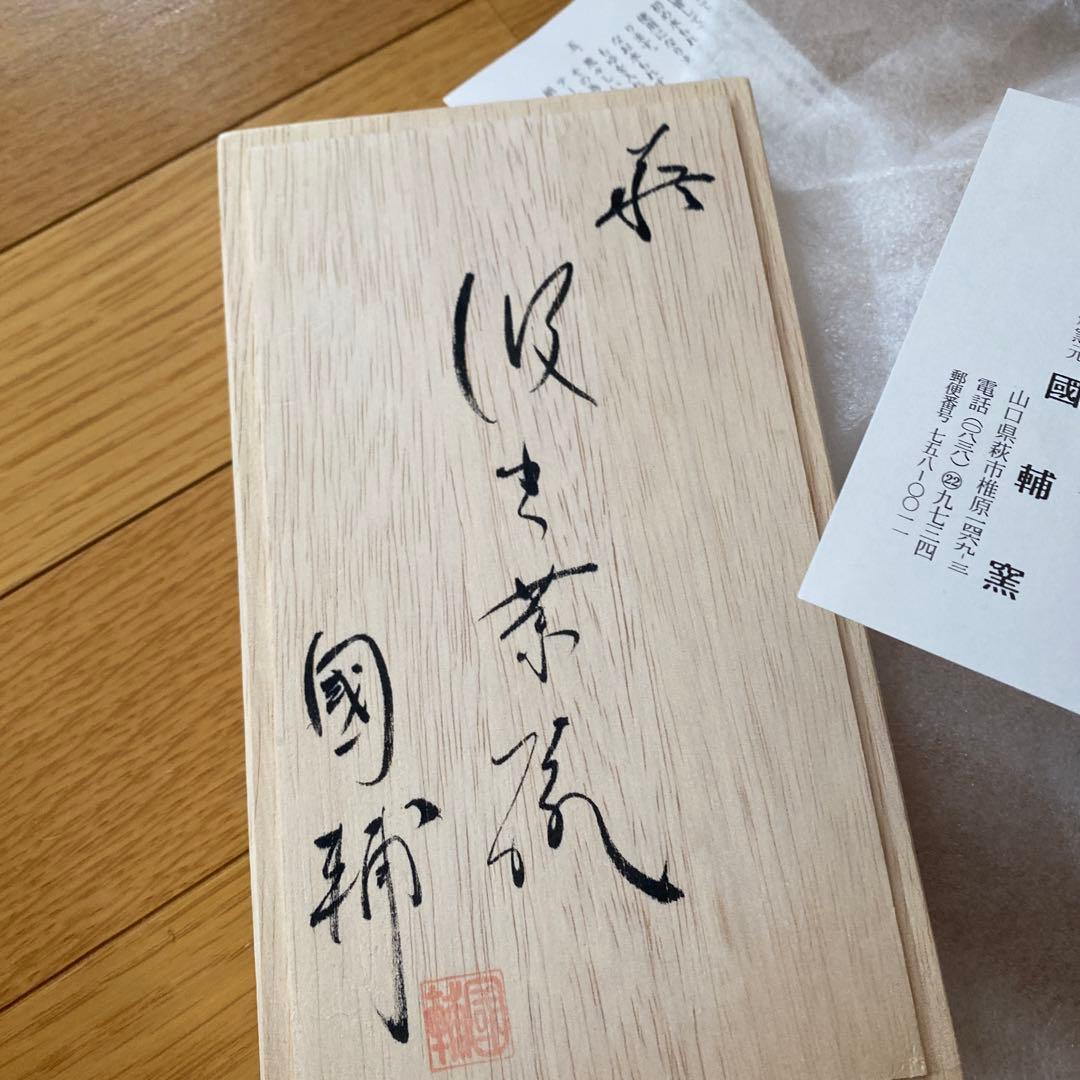 萩
汲出茶碗
國輔
國輔
窯元
國輔窯
山口県萩市椎原一四六九-三
電話(〇八三八)㉒九七三四
郵便番号 七五八-〇〇一一